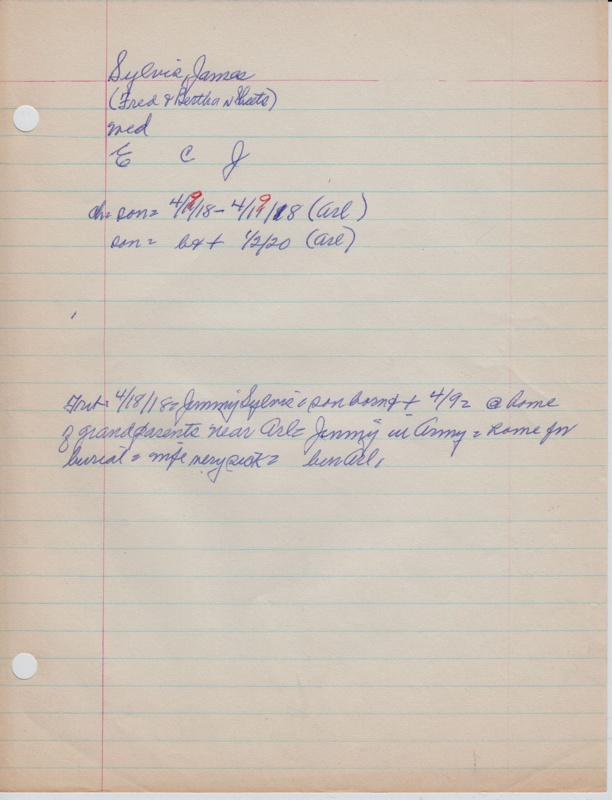 Sylvia, James
(Fred & Bertha N Sheets)
med
E C J
ch = son = 4/9/18 - 4/19/18 (Arl)
son = b&+ 1/2/20 (Arl)
4/18/18 = Jimmy Sylvia's son born & + 4/9 = @ home
of grandparents near Arl = Jimmy in Army = home for
burial = wife very sick = bur Arl,